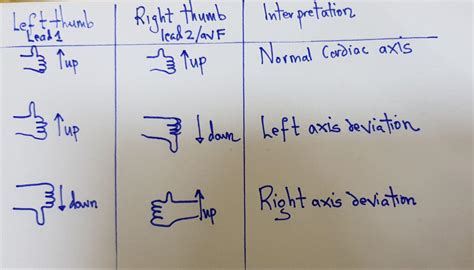 Left thumb Right thumb Interpretation
Lead 1 lead 2/avF
up up Normal Cardiac axis
up down Left axis deviation
down up Right axis deviation